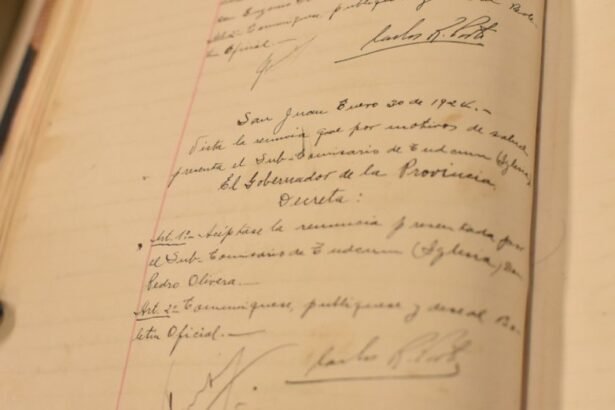 Comuníquese, publíquese y
tin Oficial.—
Carlos R. Porto
San Juan Enero 30 de 1924.—
Vista la renuncia que por motivos de salud
presenta el Sub-Comisario de Tudcum (Iglesia)
El Gobernador de la Provincia,
Decreta:
Art. 1º- Acéptase la renuncia presentada por
el Sub-Comisario de Tudcum (Iglesia) Don
Pedro Olivera.—
Art. 2º Comuníquese, publíquese y dése al Bo-
letin Oficial.—
Carlos R. Porto